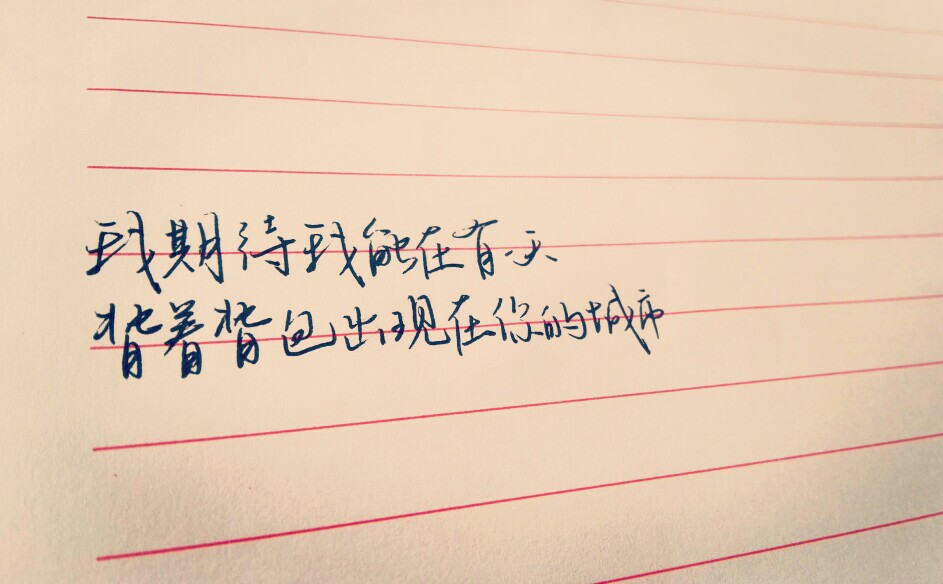 我期待我能在有一天
背着背包出现在你的城市